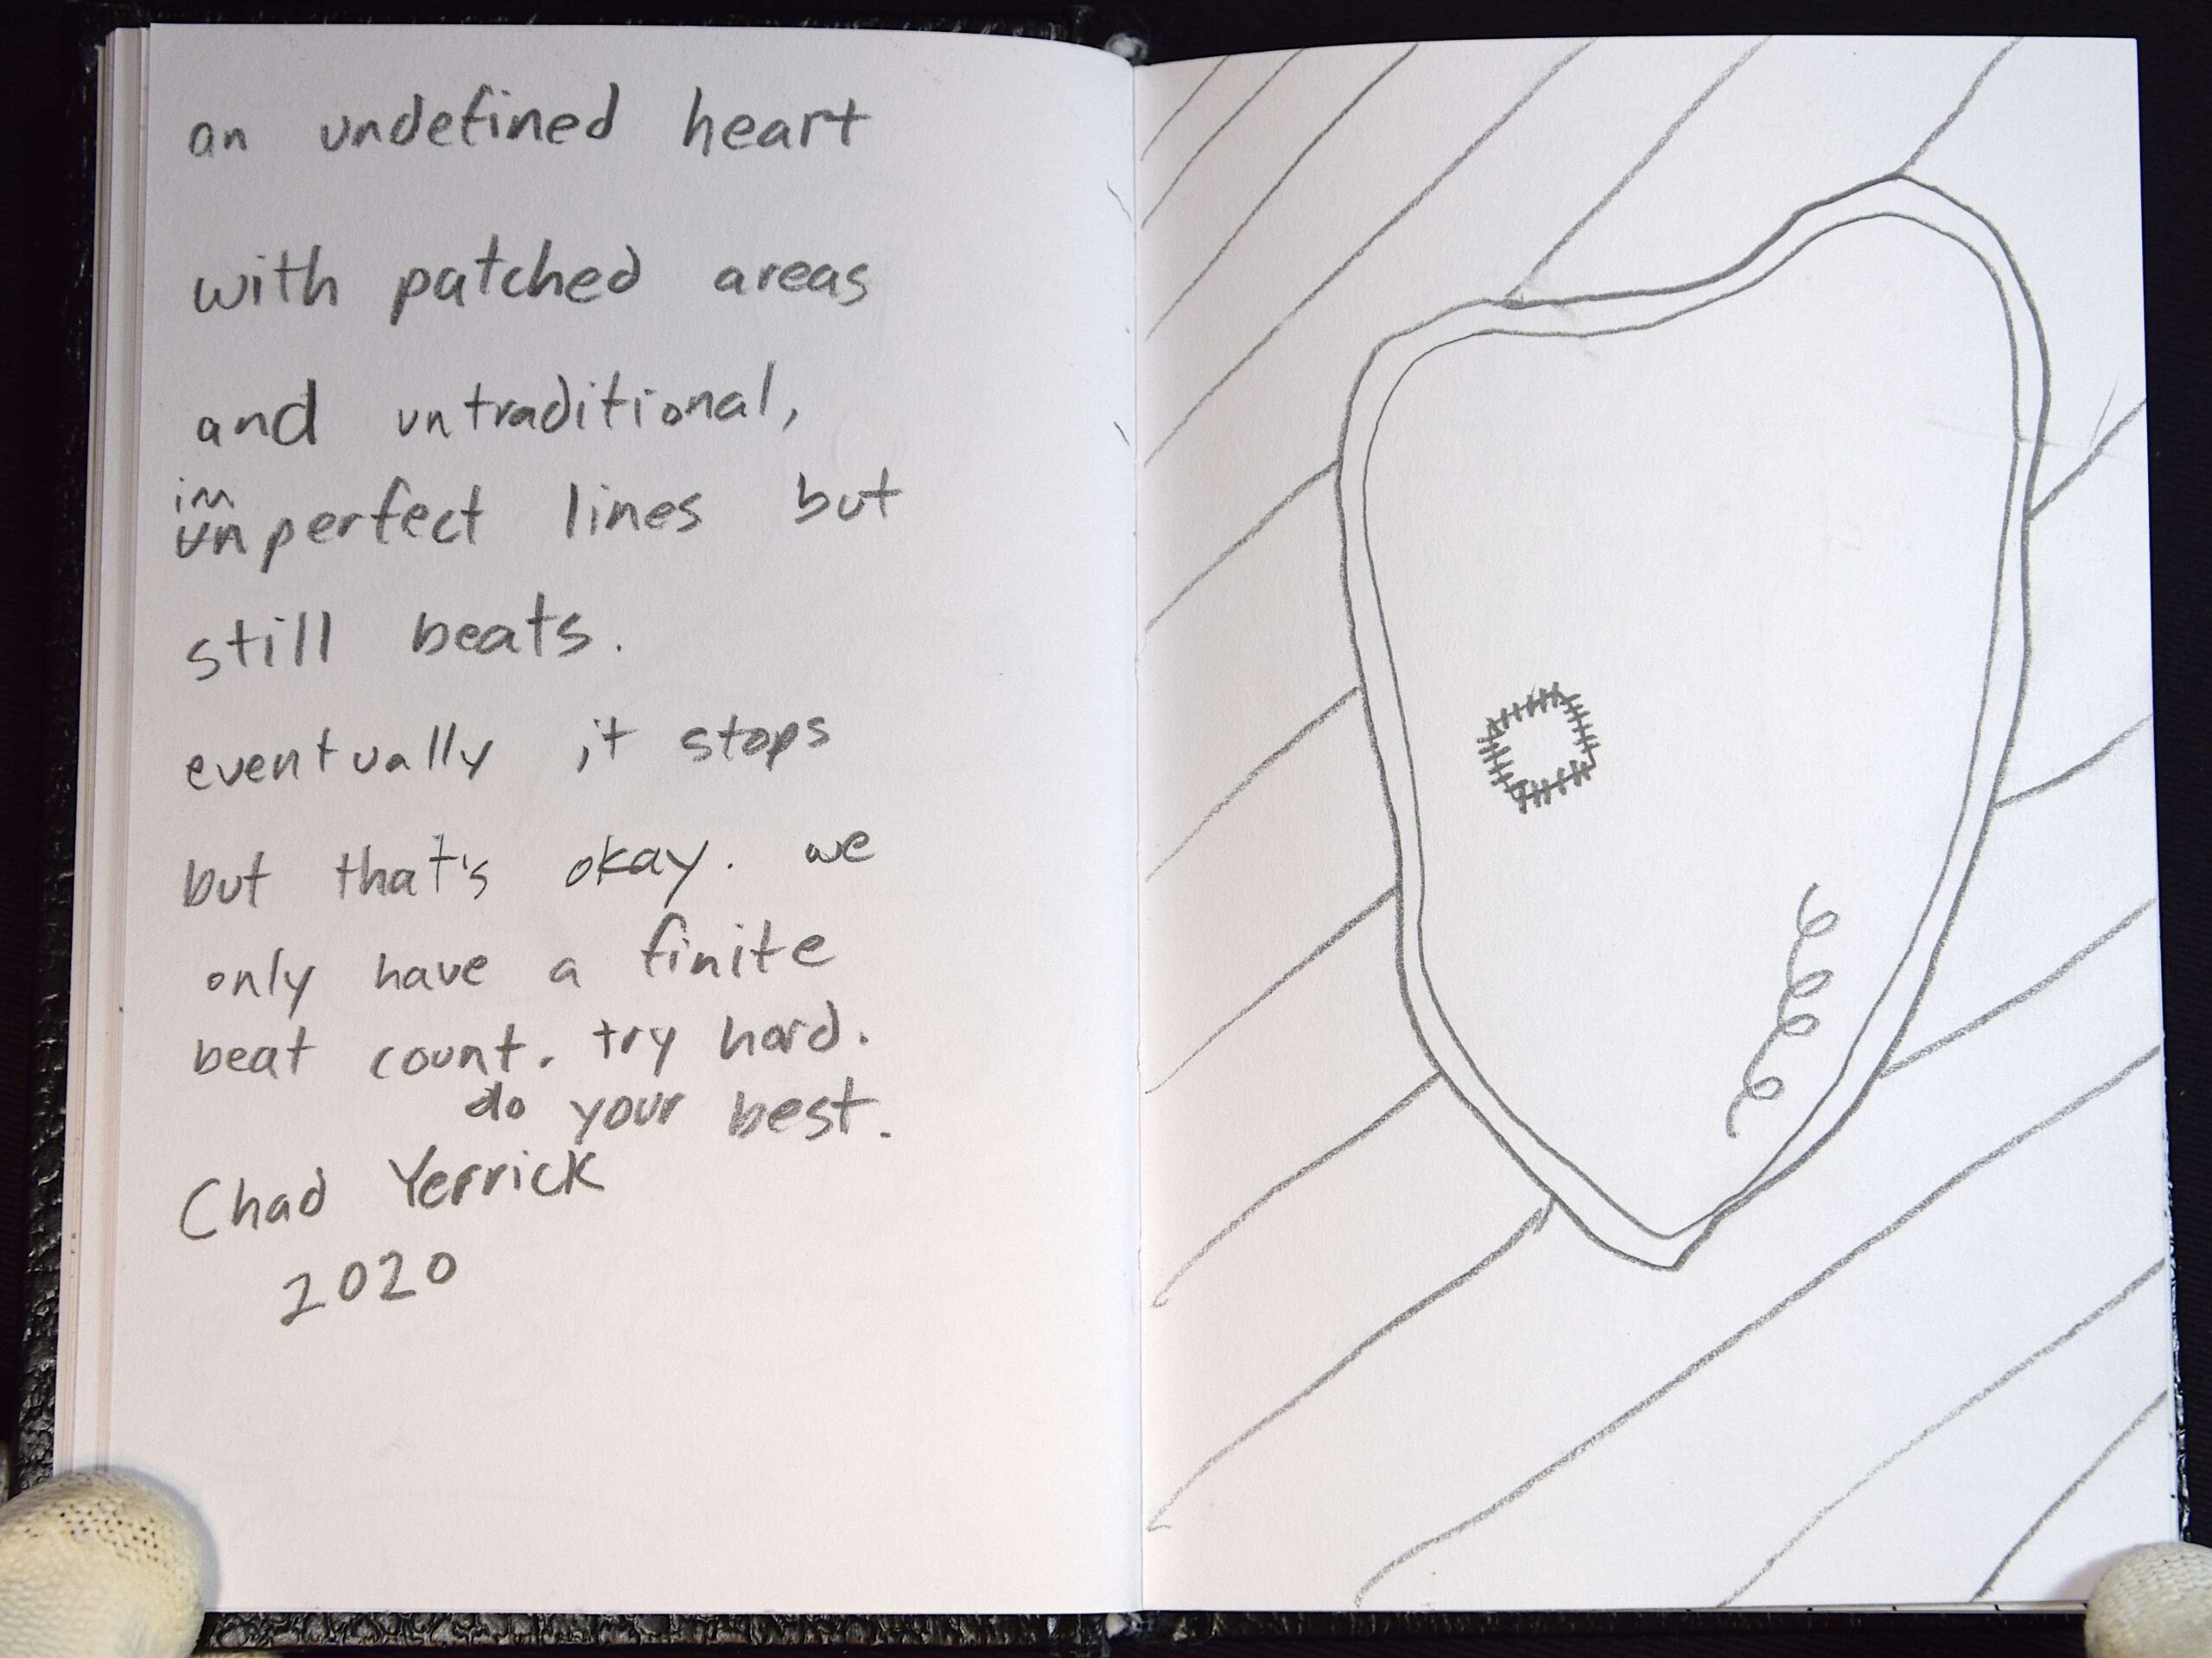 an undefined heart
with patched areas
and untraditional,
im
unperfect lines but
still beats.
eventually it stops
but that's okay. we
only have a finite
beat count. try hard.
do your best.
Chad Yerrick
2020